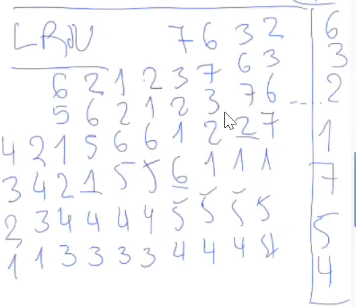 LRU 7 6 3 2
6 2 1 2 3 7 6 3
5 6 2 1 2 3 7 6
4 2 1 5 6 6 1 2 2 7
3 4 2 1 5 5 6 1 1 1
2 3 4 4 4 4 5 5 5 5
1 1 3 3 3 3 4 4 4 4
6
3
2
1
7
5
4